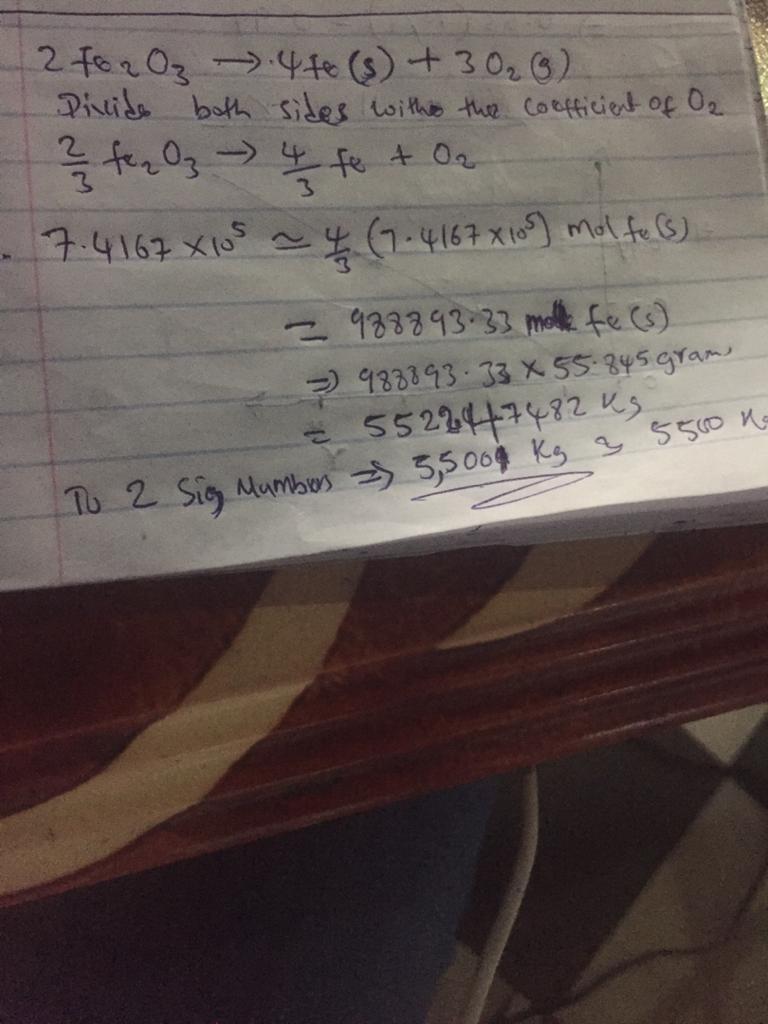 2 Fe2O3 → 4Fe (s) + 3O2 (g)
Divide both sides withe the coefficient of O2
2/3 Fe2O3 → 4/3 Fe + O2
7.4167 ×10^5 ≃ 4/3 (7.4167 ×10^5) mol Fe (s)
= 988893.33 mol Fe (s)
⇒ 988893.33 × 55.845 gram
= Kg
To 2 Sig Numbers ⇒ 5,500 Kg ≈ 5500 Kg